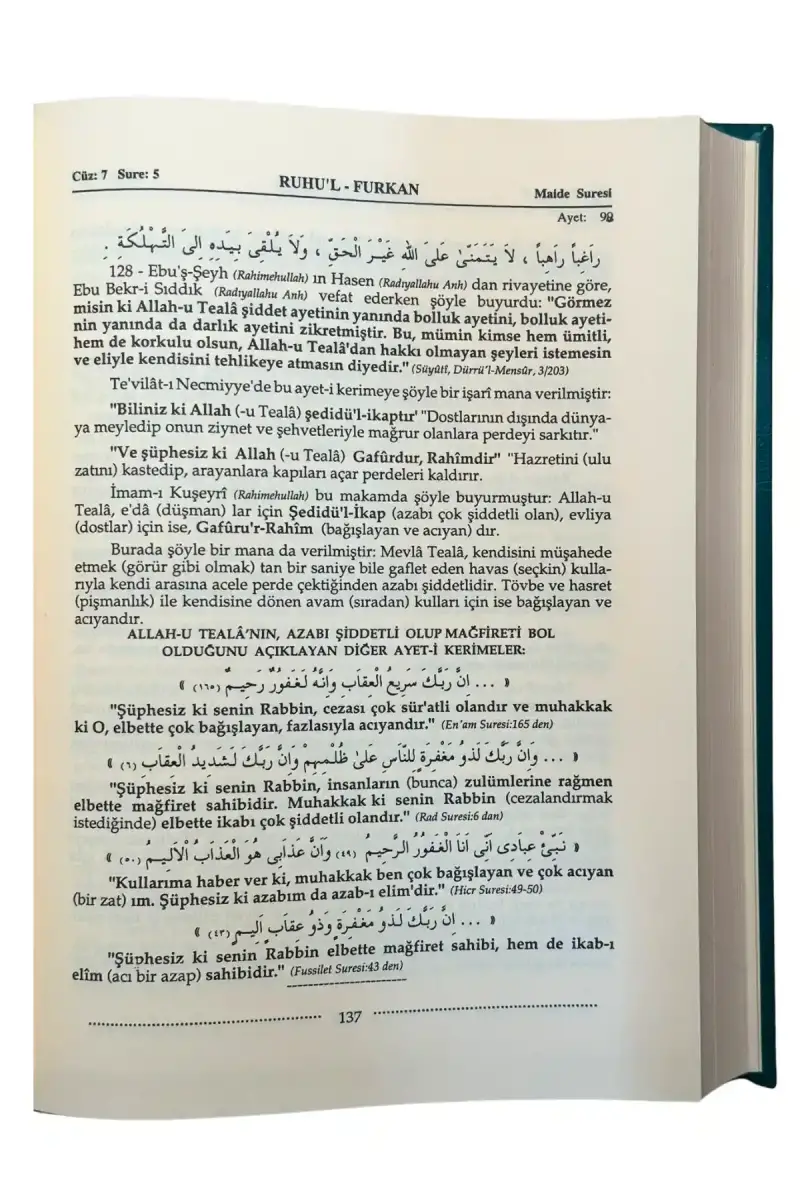 Cüz: 7 Sure: 5
RUHU'L - FURKAN
Maide Suresi
Ayet: 98
رَاغِباً رَاهِباً ، لاَ يَتَمَنَّىٰ عَلَى اللهِ غَيْرَ الْحَقِّ ، وَلاَ يُلْقِىَ بِيَدِهِ اِلَى التَّهْلُكَةِ .
128 - Ebu'ş-Şeyh (Rahimehullah) ın Hasen (Radıyallahu Anh) dan rivayetine göre,
Ebu Bekr-i Sıddık (Radıyallahu Anh) vefat ederken şöyle buyurdu: "Görmez
misin ki Allah-u Tealâ şiddet ayetinin yanında bolluk ayetini, bolluk ayeti-
nin yanında da darlık ayetini zikretmiştir. Bu, mümin kimse hem ümitli,
hem de korkulu olsun, Allah-u Tealâ'dan hakkı olmayan şeyleri istemesin
ve eliyle kendisini tehlikeye atmasın diyedir." (Süyûtî, Dürrü'l-Mensûr, 3/203)
Te'vilât-ı Necmiyye'de bu ayet-i kerimeye şöyle bir işarî mana verilmiştir:
"Biliniz ki Allah (-u Tealâ) şedidü'l-ikaptır' "Dostlarının dışında dünya-
ya meyledip onun ziynet ve şehvetleriyle mağrur olanlara perdeyi sarkıtır."
"Ve şüphesiz ki Allah (-u Tealâ) Gafûrdur, Rahîmdir" "Hazretini (ulu
zatını) kastedip, arayanlara kapıları açar perdeleri kaldırır.
İmam-ı Kuşeyrî (Rahimehullah) bu makamda şöyle buyurmuştur: Allah-u
Tealâ, e'dâ (düşman) lar için Şedidü'l-İkap (azabı çok şiddetli olan), evliya
(dostlar) için ise, Gafûru'r-Rahîm (bağışlayan ve acıyan) dır.
Burada şöyle bir mana da verilmiştir: Mevlâ Tealâ, kendisini müşahede
etmek (görür gibi olmak) tan bir saniye bile gaflet eden havas (seçkin) kulla-
rıyla kendi arasına acele perde çektiğinden azabı şiddetlidir. Tövbe ve hasret
(pişmanlık) ile kendisine dönen avam (sıradan) kulları için ise bağışlayan ve
acıyandır.
ALLAH-U TEALÂ'NIN, AZABI ŞİDDETLİ OLUP MAĞFİRETİ BOL
OLDUĞUNU AÇIKLAYAN DİĞER AYET-İ KERİMELER:
« ... اِنَّ رَبَّكَ سَرِيعُ الْعِقَابِ وَاِنَّهُ لَغَفُورٌ رَحِيمٌ (١٦٥) »
"Şüphesiz ki senin Rabbin, cezası çok sür'atli olandır ve muhakkak
ki O, elbette çok bağışlayan, fazlasıyla acıyandır." (En'am Suresi:165 den)
« ... وَاِنَّ رَبَّكَ لَذُو مَغْفِرَةٍ لِلنَّاسِ عَلىٰ ظُلْمِهِمْ وَاِنَّ رَبَّكَ لَشَدِيدُ الْعِقَابِ (٦) »
"Şüphesiz ki senin Rabbin, insanların (bunca) zulümlerine rağmen
elbette mağfiret sahibidir. Muhakkak ki senin Rabbin (cezalandırmak
istediğinde) elbette ikabı çok şiddetli olandır." (Rad Suresi:6 dan)
« نَبِّئْ عِبَادِى اَنِّى اَنَا الْغَفُورُ الرَّحِيمُ (٤٩) وَاَنَّ عَذَابِى هُوَ الْعَذَابُ الْاَلِيمُ (٥٠) »
"Kullarıma haber ver ki, muhakkak ben çok bağışlayan ve çok acıyan
(bir zat) ım. Şüphesiz ki azabım da azab-ı elim'dir." (Hicr Suresi:49-50)
« ... اِنَّ رَبَّكَ لَذُو مَغْفِرَةٍ وَذُو عِقَابٍ اَلِيمٍ (٤٣) »
"Şüphesiz ki senin Rabbin elbette mağfiret sahibi, hem de ikab-ı
elîm (acı bir azap) sahibidir." (Fussilet Suresi:43 den)
137